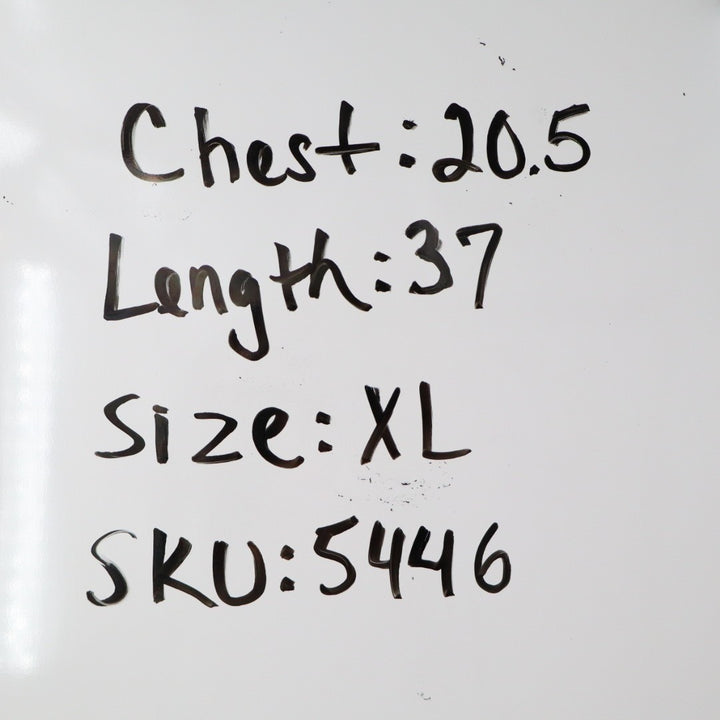 Chest:20.5
Length:37
Size:XL
SKU:5446